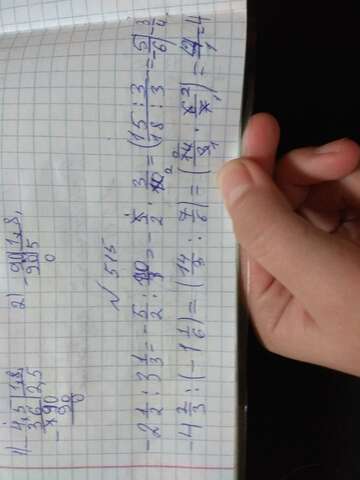 1) - 4,5 | 1,8
3 6 | 2,5
- 90
90
0
2) - 90 | 1,8
90 | 5
0
№ 515
-2 1/2 : 3 1/3 = - 5/2 : 10/3 = - 5/2 · 3/10 = (15 : 3 / 18 : 3) = 5/6 - 3/4
-4 2/3 : (-1 1/6) = (14/3 : 7/6) = (14/3 · 6/7) = 4/1 = 4